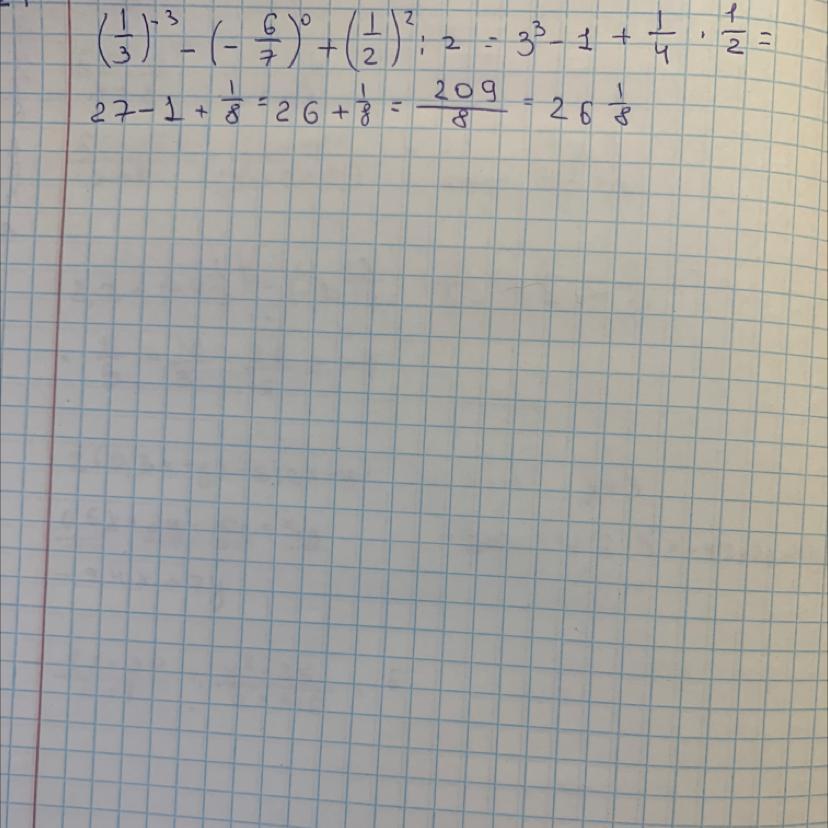 (1/3)^-3 - (- 6/7)^0 + (1/2)^2 : 2 = 3^3 - 1 + 1/4 · 1/2 =
27 - 1 + 1/8 = 26 + 1/8 = 209/8 = 26 1/8